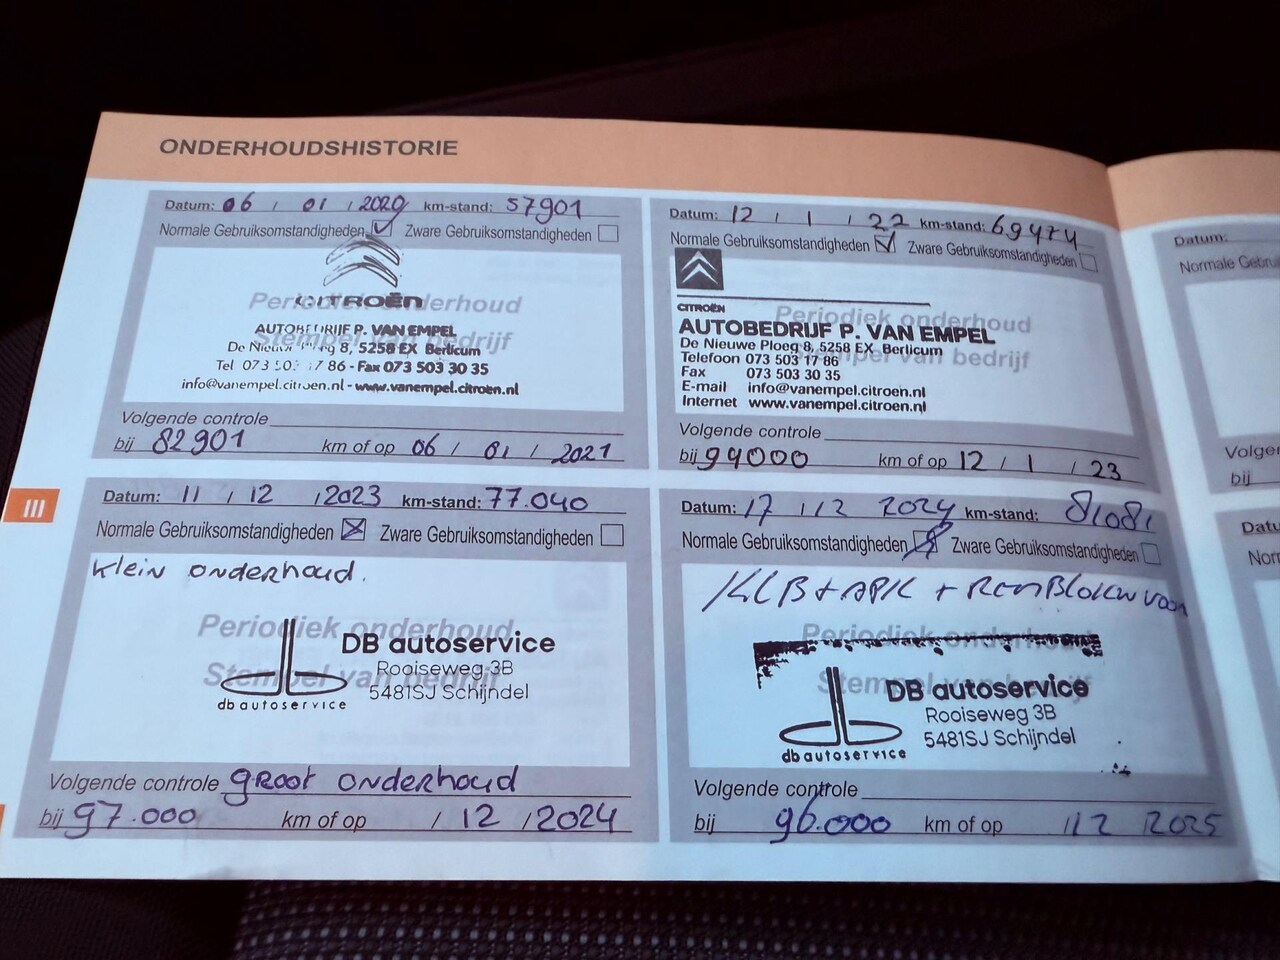 ONDERHOUDSHISTORIE
Datum: 06 / 01 / 2020 km-stand: 57901
Normale Gebruiksomstandigheden Zware Gebruiksomstandigheden
Periodiek onderhoud
CITROËN
Stempel van bedrijf
AUTOBEDRIJF P. VAN EMPEL
De Nieuwe Ploeg 8, 5258 EX Berlicum
Tel 073 503 17 86 - Fax 073 503 30 35
info@vanempel.citroen.nl - www.vanempel.citroen.nl
Volgende controle
bij 82901 km of op 06 / 01 / 2021
Datum: 12 / 1 / 22 km-stand: 69474
Normale Gebruiksomstandigheden Zware Gebruiksomstandigheden
Periodiek onderhoud
Stempel van bedrijf
CITROËN
AUTOBEDRIJF P. VAN EMPEL
De Nieuwe Ploeg 8, 5258 EX Berlicum
Telefoon 073 503 17 86
Fax 073 503 30 35
E-mail info@vanempel.citroen.nl
Internet www.vanempel.citroen.nl
Volgende controle
bij 94000 km of op 12 / 1 / 23
III
Datum: 11 / 12 / 2023 km-stand: 77.040
Normale Gebruiksomstandigheden Zware Gebruiksomstandigheden
klein onderhoud.
Periodiek onderhoud
Stempel van bedrijf
DB autoservice
Rooiseweg 3B
5481SJ Schijndel
db autoservice
Volgende controle groot onderhoud
bij 97.000 km of op / 12 / 2024
Datum: 17 / 12 2024 km-stand: 81081
Normale Gebruiksomstandigheden Zware Gebruiksomstandigheden
KLB + APK + Remblokken voor
Periodiek onderhoud
Stempel van bedrijf
DB autoservice
Rooiseweg 3B
5481SJ Schijndel
db autoservice
Volgende controle
bij 96.000 km of op / 12 / 2025
Datum:
Normale
Volgende
bij
Datum